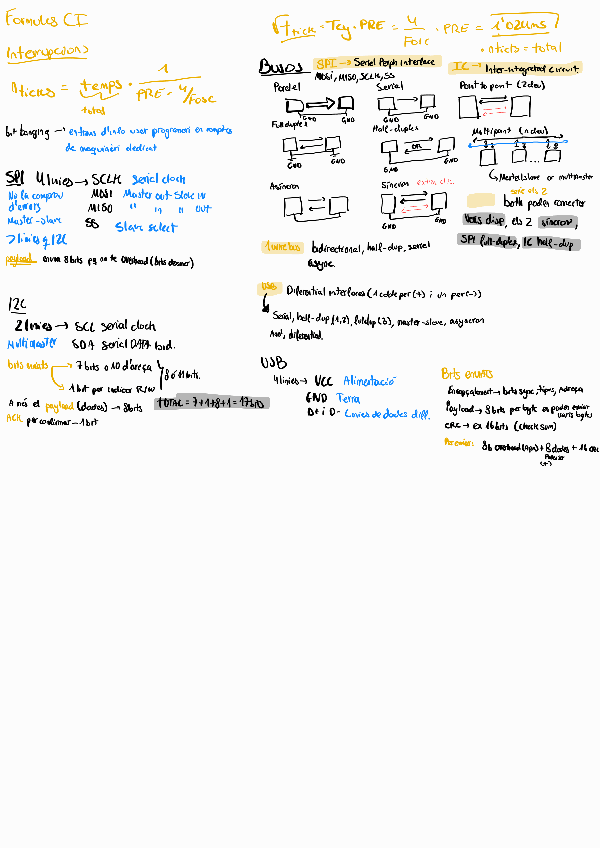 Formules CI
Interrupcions
nticks = temps · 1 / PRE · 4/Fosc
total
bit banging → extreus d'info usar programari en comptes
de maquinari dedicat
SPI 4 línies → SCLK serial clock
No fa comprov d'errors
MOSI Master out-Slave IN
MISO " in " out
Master-slave
SS Slave select
> línies q I2C
payload envia 8 bits pq no té overhead (bits d'
I2C
2 línies → SCL serial clock
Multimaster SDA serial DATA
bits enviats → 7 bits o 10 d'adreça
→ 1 bit per indicar R/W
8 o 11 bits.
A més el payload (dades) → 8 bits
TOTAL = 7+1+8+1 = 17 bits
ACK per confirmar → 1 bit
Ttick = Tcy · PRE = 4/Fosc · PRE = 1'024ms
· nticks = total
Busos
SPI → Serial Periph Interface
MOSI, MISO, SCLK, SS
IC → Inter-integrated circuit.
Parallel
Serial
GND GND
Full duplex
Half-duplex
GND GND
GND GND
OR
Asíncron
Síncron
Point to point (2 dev)
Multipoint (n dev)
...
→ Mertel slave or multimaster
sèrie els 2
both poden connectar
varis disp, els 2 síncron,
SPI full-duplex, IC half-dup
1 wire bus bidirectional, half-dup, serial
async.
USB Diferential interfaces (1 cable per (+) i un per (-))
Serial, half-dup (1,2), fulldup (3), master-slave, asyncron
diferential.
USB
4 línies → VCC Alimentació
GND Terra
D+ i D- Línies de dades diff.
Bits enviats
Encapçalament → bits sync, tipus, adreça
Payload → 8 bits per byte es poden enviar
varis bytes
CRC → ex 16 bits (checksum)
Per enviar: 8b overhead + 8 dades + 16 CRC
(+)